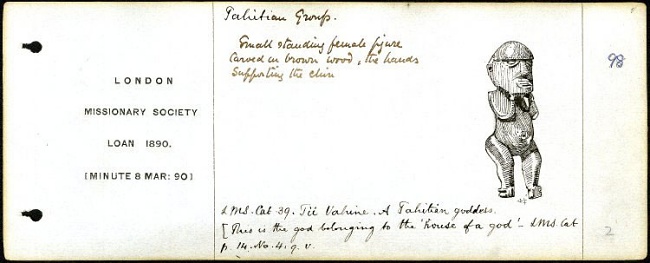 Tahitian Group.
Small standing female figure
Carved in brown wood, the hands
supporting the chin
LONDON
MISSIONARY SOCIETY
LOAN 1890.
[MINUTE 8 MAR: 90]
98
LMS. Cat 39. Tii Vahine. A Tahitian goddess.
[This is the god belonging to the 'house of a god' – LMS. Cat
p. 14. No. 4. q. v.
2